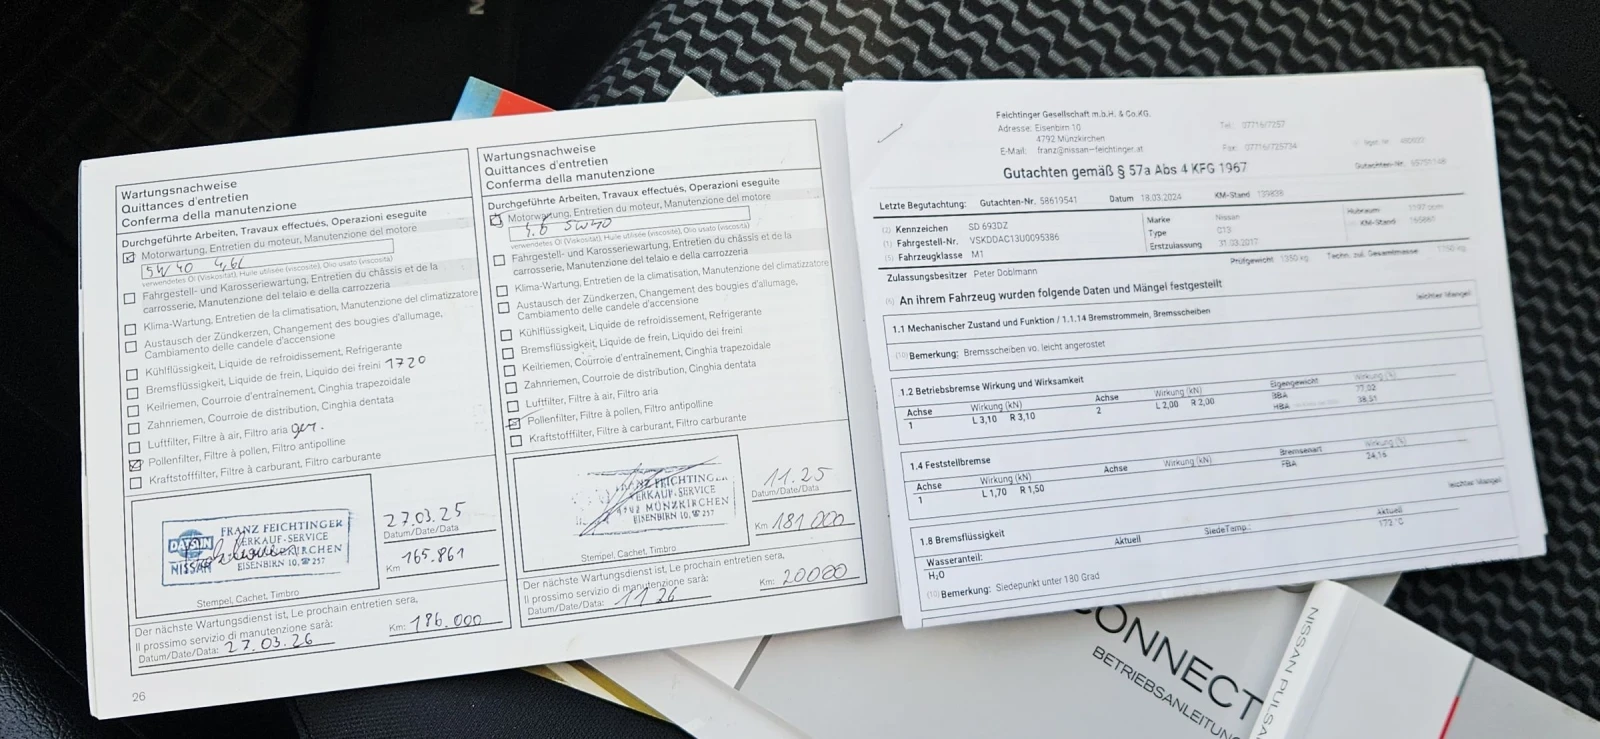 Wartungsnachweise
Quittances d'entretien
Conferma della manutenzione
Durchgeführte Arbeiten, Travaux effectués, Operazioni eseguite
Motorwartung, Entretien du moteur, Manutenzione del motore
5W40 4,6L
verwendetes Öl (Viskosität), Huile utilisée (viscosité), Olio usato (viscosità)
Fahrgestell- und Karosseriewartung, Entretien du châssis et de la
carrosserie, Manutenzione del telaio e della carrozzeria
Klima-Wartung, Entretien de la climatisation, Manutenzione del climatizzatore
Austausch der Zündkerzen, Changement des bougies d'allumage,
Cambiamento delle candele d'accensione
Kühlflüssigkeit, Liquide de refroidissement, Refrigerante
Bremsflüssigkeit, Liquide de frein, Liquido dei freini 1720
Keilriemen, Courroie d'entraînement, Cinghia trapezoidale
Zahnriemen, Courroie de distribution, Cinghia dentata
Luftfilter, Filtre à air, Filtro aria ger.
Pollenfilter, Filtre à pollen, Filtro antipolline
Kraftstofffilter, Filtre à carburant, Filtro carburante
DATSUN
NISSAN
FRANZ FEICHTINGER
VERKAUF-SERVICE
KIRCHEN
EISENBIRN 10, ☎ 257
Stempel, Cachet, Timbro
27.03.25
Datum/Date/Data
Km 165.861
Der nächste Wartungsdienst ist, Le prochain entretien sera,
Il prossimo servizio di manutenzione sarà:
Datum/Date/Data: 27.03.26
Km: 186.000
26
Wartungsnachweise
Quittances d'entretien
Conferma della manutenzione
Durchgeführte Arbeiten, Travaux effectués, Operazioni eseguite
Motorwartung, Entretien du moteur, Manutenzione del motore
5W40
verwendetes Öl (Viskosität), Huile utilisée (viscosité), Olio usato (viscosità)
Fahrgestell- und Karosseriewartung, Entretien du châssis et de la
carrosserie, Manutenzione del telaio e della carrozzeria
Klima-Wartung, Entretien de la climatisation, Manutenzione del climatizzatore
Austausch der Zündkerzen, Changement des bougies d'allumage,
Cambiamento delle candele d'accensione
Kühlflüssigkeit, Liquide de refroidissement, Refrigerante
Bremsflüssigkeit, Liquide de frein, Liquido dei freini
Keilriemen, Courroie d'entraînement, Cinghia trapezoidale
Zahnriemen, Courroie de distribution, Cinghia dentata
Luftfilter, Filtre à air, Filtro aria
Pollenfilter, Filtre à pollen, Filtro antipolline
Kraftstofffilter, Filtre à carburant, Filtro carburante
VERKAUF-SERVICE
4792 MÜNZKIRCHEN
EISENBIRN 10, ☎ 257
Stempel, Cachet, Timbro
11.25
Datum/Date/Data
Km 181000
Der nächste Wartungsdienst ist, Le prochain entretien sera,
Il prossimo servizio di manutenzione sarà:
Datum/Date/Data: 11 26
Km: 20000
Feichtinger Gesellschaft m.b.H. & Co.KG.
Adresse: Eisenbirn 10
4792 Münzkirchen
E-Mail: franz@nissan-feichtinger.at
Tel.: 07716/7257
Fax: 07716/725734
Gutachten gemäß § 57a Abs 4 KFG 1967
Letzte Begutachtung: Gutachten-Nr. 58619541 Datum 18.03.2024 KM-Stand
Kennzeichen SD 693DZ
Fahrgestell-Nr. VSKDDAC13U0095386
Fahrzeugklasse M1
Marke Nissan
Type C13
Erstzulassung 31.03.2017
Hubraum 1197 ccm
KM-Stand
Zulassungsbesitzer Peter Doblmann
Prüfgewicht 1350 kg Techn. zul. Gesamtmasse
An ihrem Fahrzeug wurden folgende Daten und Mängel festgestellt
leichter Mangel
1.1 Mechanischer Zustand und Funktion / 1.1.14 Bremstrommeln, Bremsscheiben
Bemerkung: Bremsscheiben vo. leicht angerostet
1.2 Betriebsbremse Wirkung und Wirksamkeit
Achse Wirkung (kN) Achse Wirkung (kN) Eigengewicht Wirkung (%)
1 L 3,10 R 3,10 2 L 2,00 R 2,00 BBA 77,02
HBA 38,51
1.4 Feststellbremse
Achse Wirkung (kN) Achse Wirkung (kN) Bremsenart Wirkung (%)
1 L 1,70 R 1,50 FBA 24,16
leichter Mangel
1.8 Bremsflüssigkeit
Wasseranteil: Aktuell SiedeTemp.: Aktuell
H₂O 172 °C
Bemerkung: Siedepunkt unter 180 Grad
CONNECT
BETRIEBSANLEITUNG
NISSAN PULSA